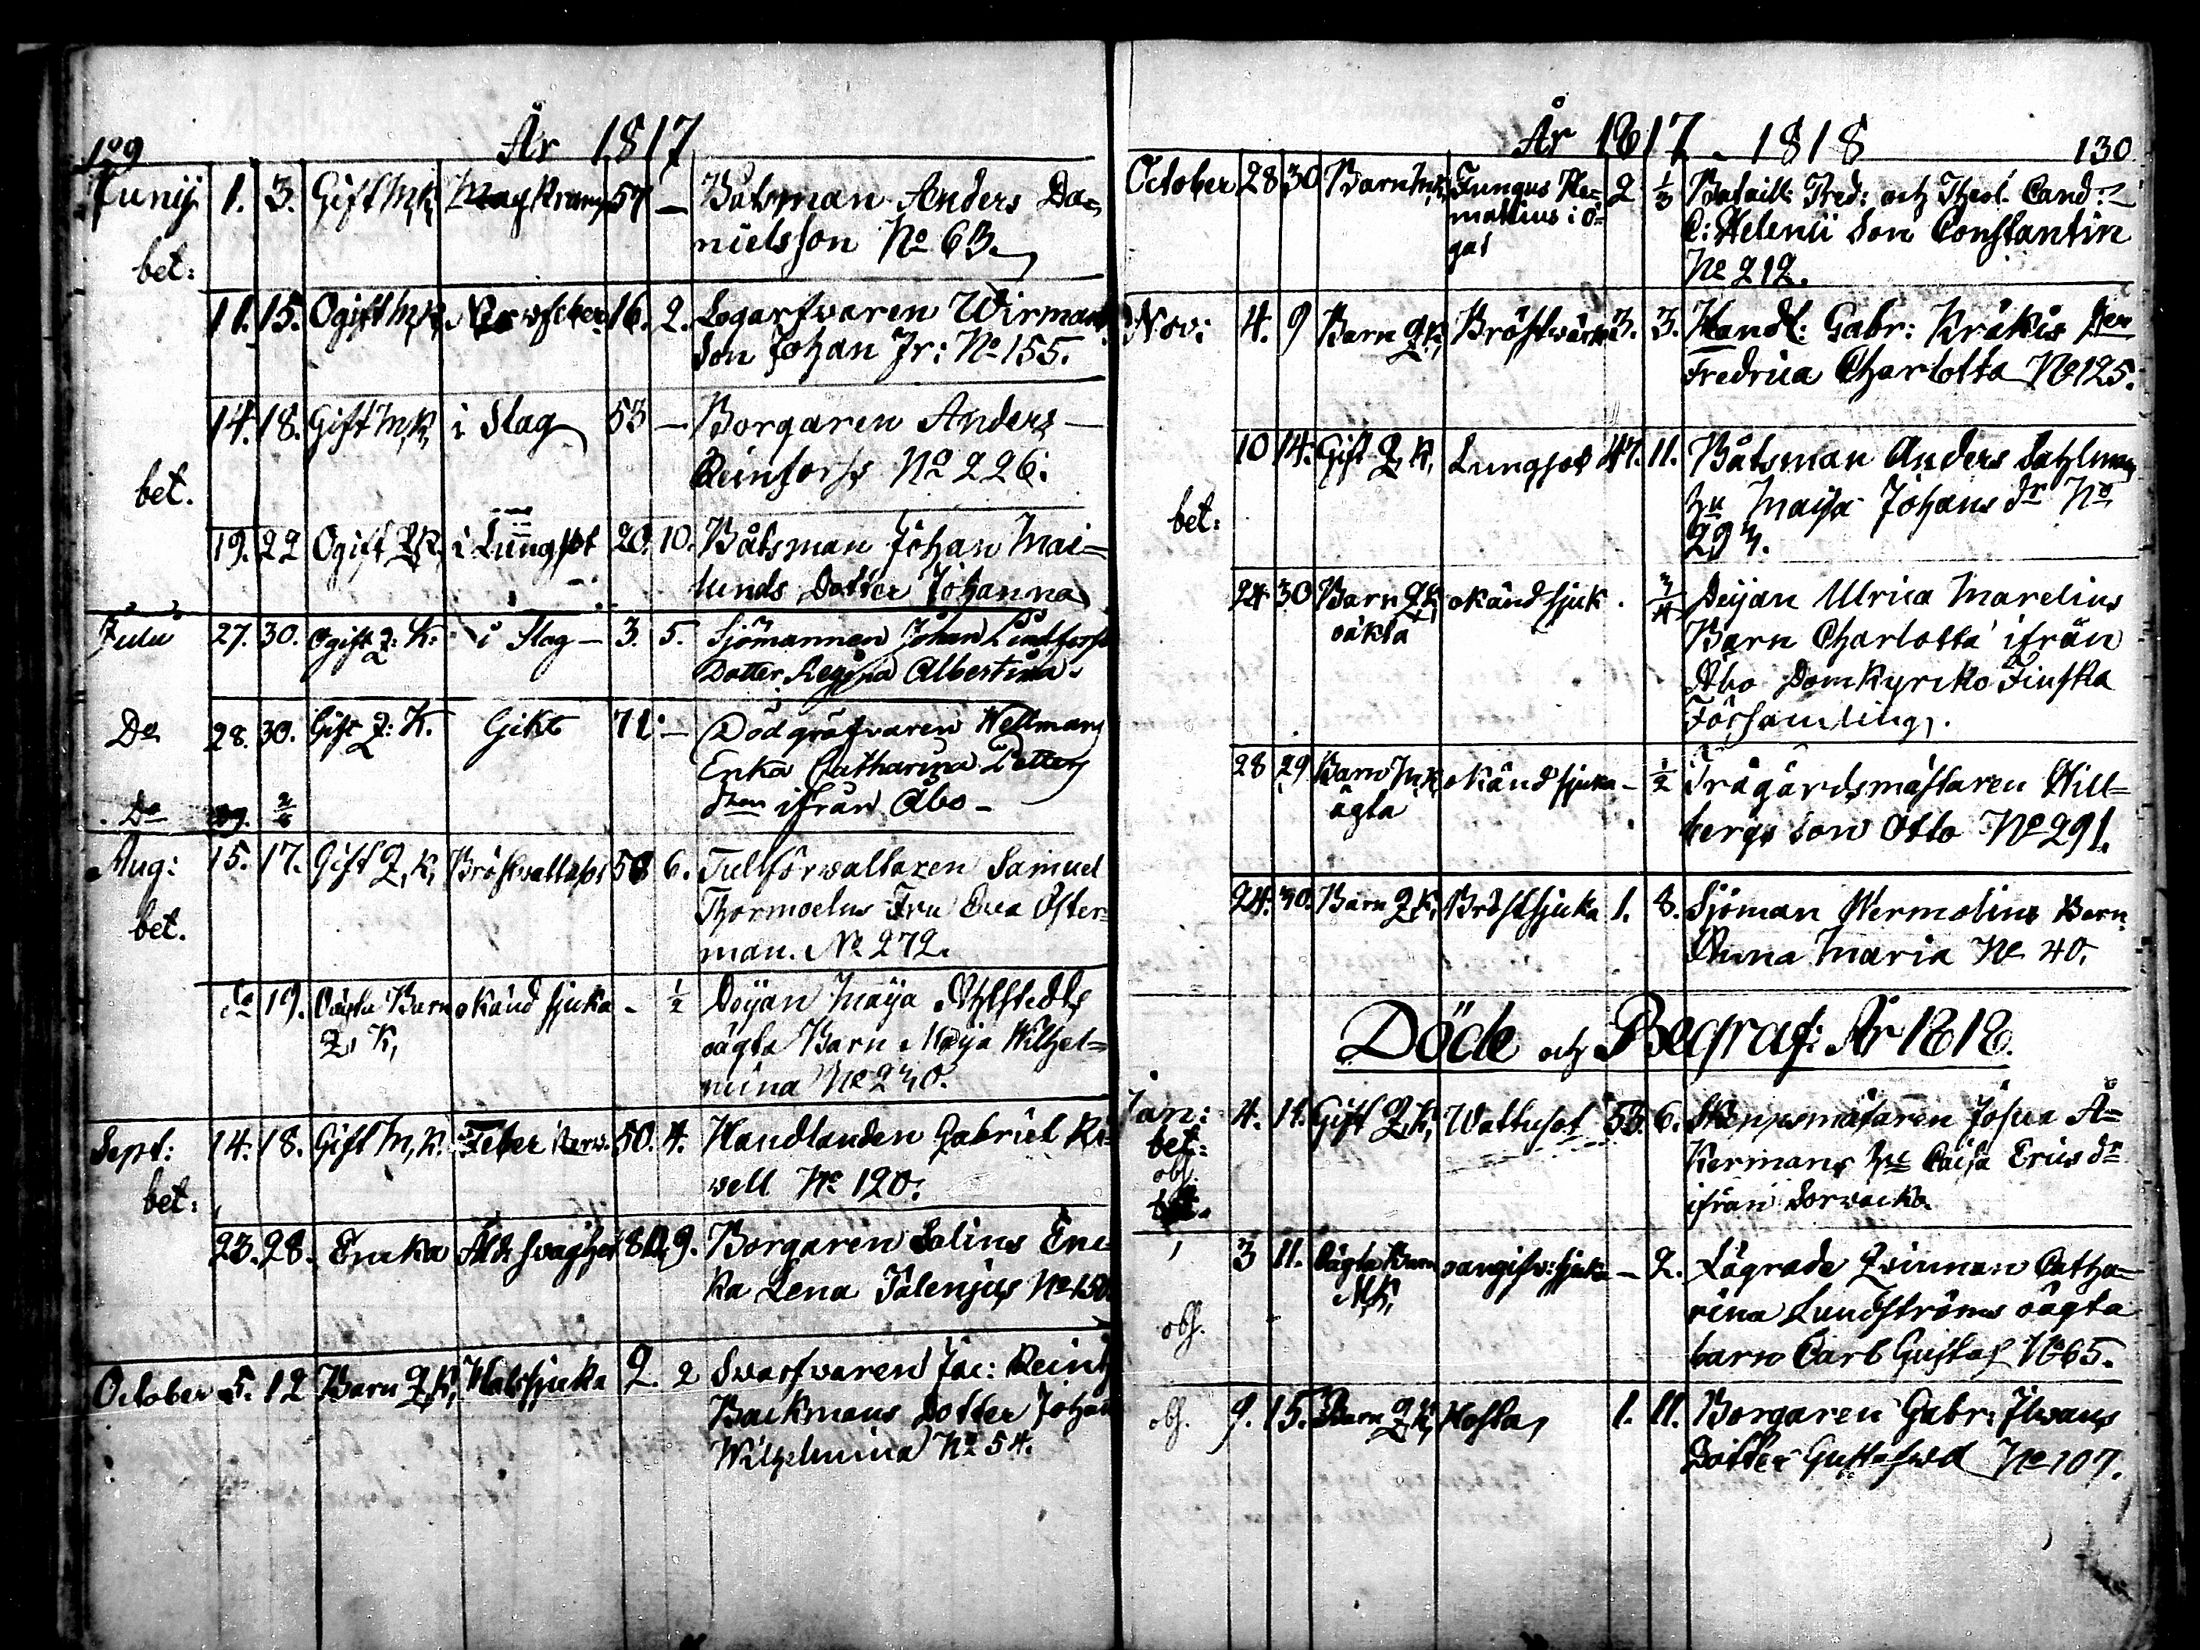 129 År 1817
Junij 1. 3. Gift M.K. Magkramp 57 — Båtsman Anders Da=
nielsson No 63.
bet:
11. 15. Ogift M.K. 16. 2. Logarfwaren Wirmans
Son Johan Jr: No 155.
14. 18. Gift M.K. i Slag 53 — Borgaren Anders
Reinforss No 226.
bet.
19. 22 Ogift Q.K. i Lungsot 20. 10. Båtsman Johan Mai=
lunds Dotter Johanna
Julii 27. 30. Ogift Q: K. i Slag — 3. 5. Sjömannen Johan Lindforss
Dotter Regina Albertina.
Do 28. 30. Gift Q: K. Gikt 71. — Dödgräfwaren Wellmans
Enka Catharina Petters
dter ifrån Åbo —
Do 29.
Aug: 15. 17. Gift Q, K, 58 6. Tullförwaltaren Samuel
Thormoelus Fru Eva Öster=
man. No 272.
bet.
do 19. Oägta Barn okänd sjuka - 1/2 Deijan Maija Ahlstedts
Q, K, oägta Barn Maija Wilhel=
mina No 230.
Sept: 14. 18. Gift M, K. Feber Nerv. 50. 4. Handlanden Gabriel Ki=
vell No 120.
bet:
23. 28. Encka Åld. swaghet 80. 9. Borgaren Salins Enc=
ka Lena Idlenjus No 150
October 5. 12 Barn Q K, Halssjuka 2. 2 Swarfwaren Jac: Reinh
Backmans Dotter Johan
Wilhelmina No 54.
År 1817 - 1818 130
October 28 30 Barn M.K. Fungus He= 2 1/3 Bataill: Pred: och Theol. Cand:
matlius i ö= C: Helenii Son Constantin
gat No 212.
Nov: 4. 9 Barn Q.K, Bröstwärk 3. 3. Handl: Gabr: Kråkis Der
Fredrica Charlotta No 125.
10 14. Gift Q, K, Lungsot 47. 11. Båtsman Anders Dahlmans
hu Maija Johans dr No
293.
bet:
24 30 Barn Q K, okänd sjuk . 3/4 Deijan Ulrica Marelius
oäkta Barn Charlotta ifrån
Åbo Domkyrko Finska
Församling.
28 29 Barn M.K, okänd sjuka - 1/2 Trägårdsmästaren Will=
ägta bergs Son Otto No 291.
24. 30. Barn Q K, Bröstsjuka 1. 8. Sjöman Wermelins Barn
Anna Maria No 40.
Döde och Begraf: År 1818.
Jan: 4. 11. Gift Q, K, Wattusot 53. 6. Skeppsmätaren Josua Å=
bet: kermans hu Caisa Erics dr
obs. ifrån Sorwacko.
3 11. Oägta Barn oangifw: sjuka - 2. Lägrade Qwinnan Catha=
M,K, rina Lundströms oägta
obs. barn Carl Gustaf No 65.
obs. 9. 15. Barn Q K, Hosta, 1. 11. Borgaren Gabr: Ilvans
Dotter Gustafwa No 107.